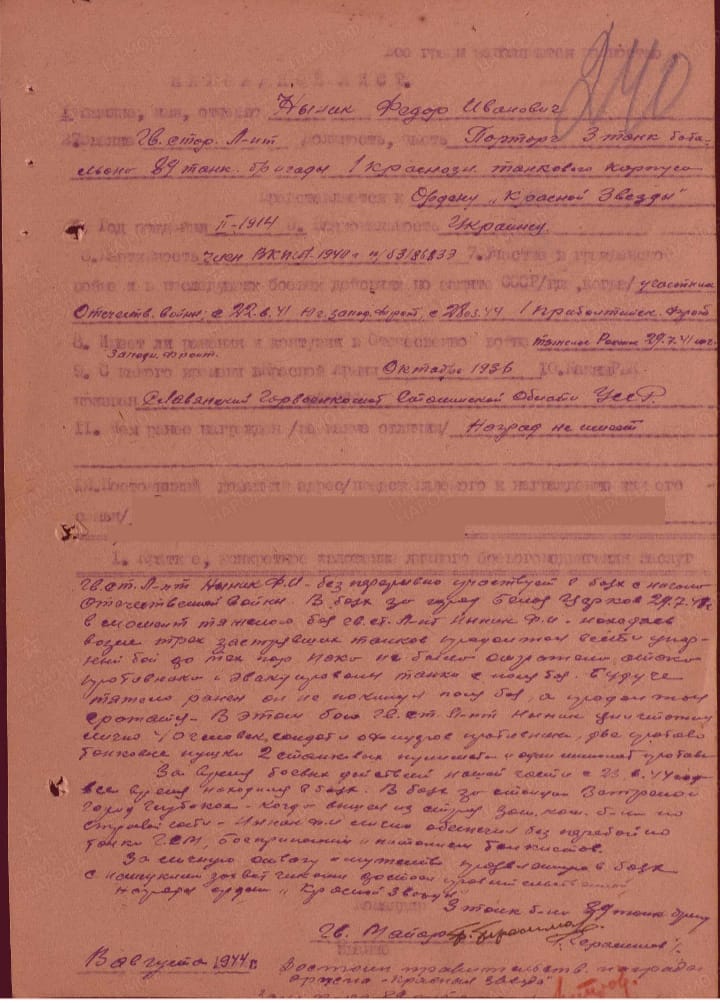 все графы заполняются полностью
НАГРАДНОЙ ЛИСТ.
240
1. Фамилия, имя, отчество Ныник Федор Иванович
2. Звание Гв. стар. Л-нт должность, часть Парторг 3 танк бата-
льона 89 танк. бригады 1 Краснозн. танкового корпуса
представляется к Ордену „Красной Звезды"
4. Год рождения II-1914 5. Национальность Украинец.
6. Партийность член ВКП/б/ 7. Участие в гражданской
войне и в последующих боевых действиях по защите СССР/где, когда/ участник
Отечеств. войны; с 22.6.41 Юг. запад. Фронт, с 1 Прибалтийск. Фронт
8. Имеет ли ранения и контузии в Отечественной войне тяжелое 29.7.41 юго-
Западн. Фронт.
9. С какого времени в Красной Армии Октябрь 1936 10. Каким РВК
призван Славянский Горвоенкомат Сталинской Области УССР.
11. Чем ранее награжден /за какие отличия/ Наград не имеет
12. Постоянный домашний адрес/представляемого к награждению или его
семьи/
1. Краткое, конкретное изложение личного боевого подвига или заслуг
Гв. ст. Л-нт Ныник Ф.И - без перерывно участвует в боях с начала
Отечественной войны. В боях за город Белая Церковь 29.7.41
в момент тяжелого боя гв. ст. Л-нт Ныник Ф.И - находясь
возле трех застрявших танков продолжал вести упор-
ный бой до тех пор пока не были отражены атаки
противника и эвакуированы танки с поля боя. Будучи
тяжело ранен он не покинул поля боя, а продолжал
сражаться - В этом бою Гв. ст. Л-нт Ныник уничтожил
лично 40 человек солдат и офицеров противника, две противо
танковые пушки 2 станковых пулемета и один миномет противн.
За время боевых действий нашей части с 23.6.44 года
все время находился в боях. В боях за станцию
город Глубокое - когда вышел из строя зам. ком. б-на по
строевой части - Ныник Ф.И лично обеспечил без перебойно
танки ГСМ, боеприпасами и питанием танкистов.
За личную отвагу и мужество проявленные в боях
с немецкими захватчиками достоин правительственной
награды орден „Красной Звезды"
Командир
3 танк. б-на 89 танк. бриг.
Гв. Майор
/Герасимов/.
8 августа 1944 г
Достоин правительств. награды
ордена „Красная Звезда"